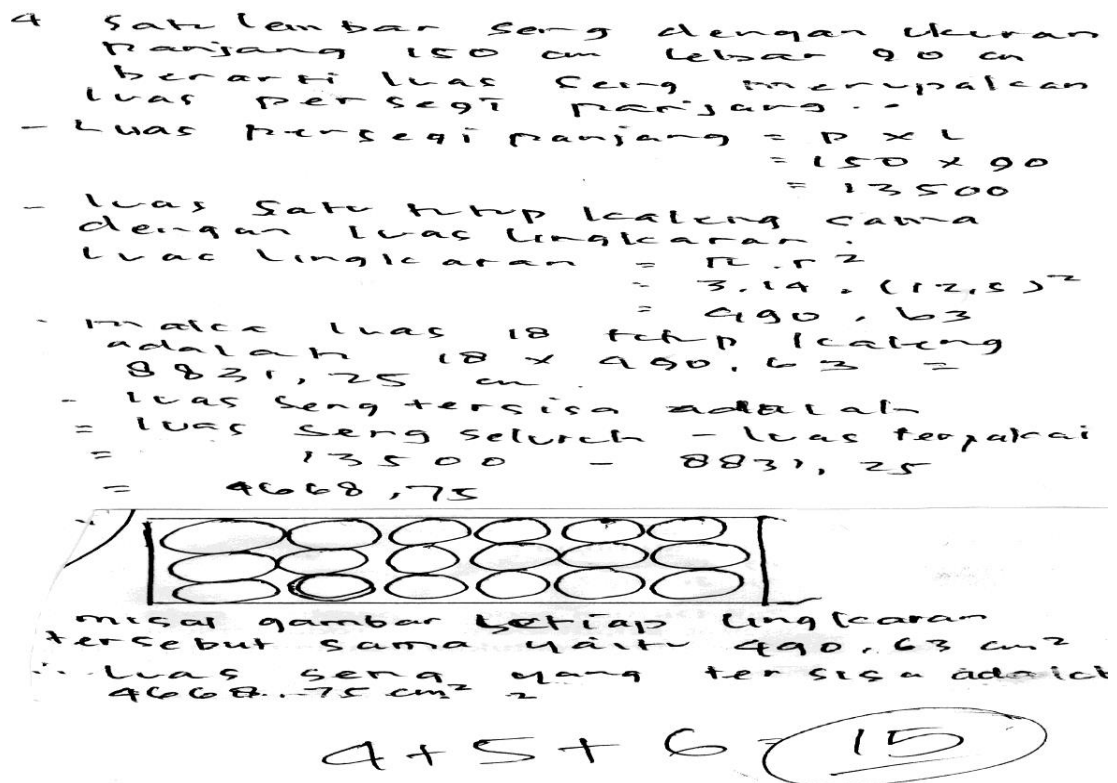 4 Satu lembar seng dengan ukuran
panjang 150 cm lebar 90 cm
berarti luas seng merupakan
luas persegi panjang..
- Luas persegi panjang = P x L
= 150 x 90
= 13500
- luas satu tutup kaleng sama
dengan luas lingkaran.
Luas lingkaran = π.r²
= 3,14 . (12,5)²
= 490,63
- maka luas 18 tutup kaleng
adalah 18 x 490,63 =
8831,25 cm
- luas seng tersisa adalah
= luas seng seluruh - luas terpakai
= 13500 - 8831,25
= 4668,75
misal gambar setiap lingkaran
tersebut sama yaitu 490,63 cm²
∴ Luas seng yang tersisa
4668,75 cm²
4 + 5 + 6 = 15